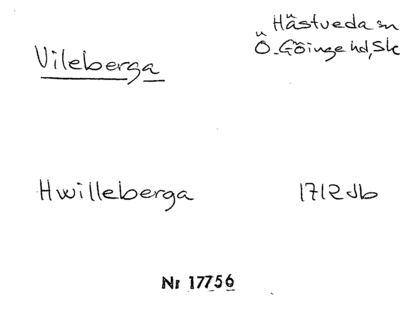 Vileberga
Hästveda sn
Ö. Göinge hd, Sk
Hwilleberga 1712 db
Nr 17756